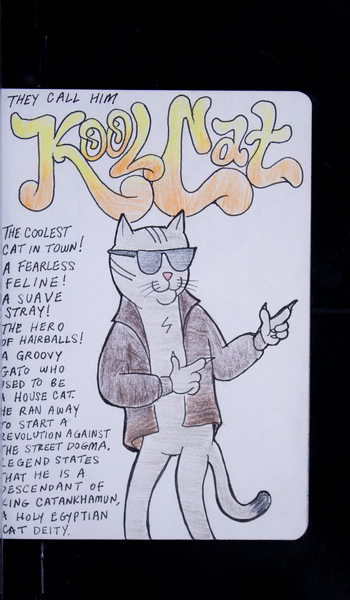 THEY CALL HIM
Kool Cat
THE COOLEST
CAT IN TOWN!
A FEARLESS
FELINE!
A SUAVE
STRAY!
THE HERO
OF HAIRBALLS!
A GROOVY
GATO WHO
USED TO BE
A HOUSE CAT.
HE RAN AWAY
TO START A
REVOLUTION AGAINST
THE STREET DOGMA.
LEGEND STATES
THAT HE IS A
DESCENDANT OF
KING CATANKHAMUN,
A HOLY EGYPTIAN
CAT DEITY.